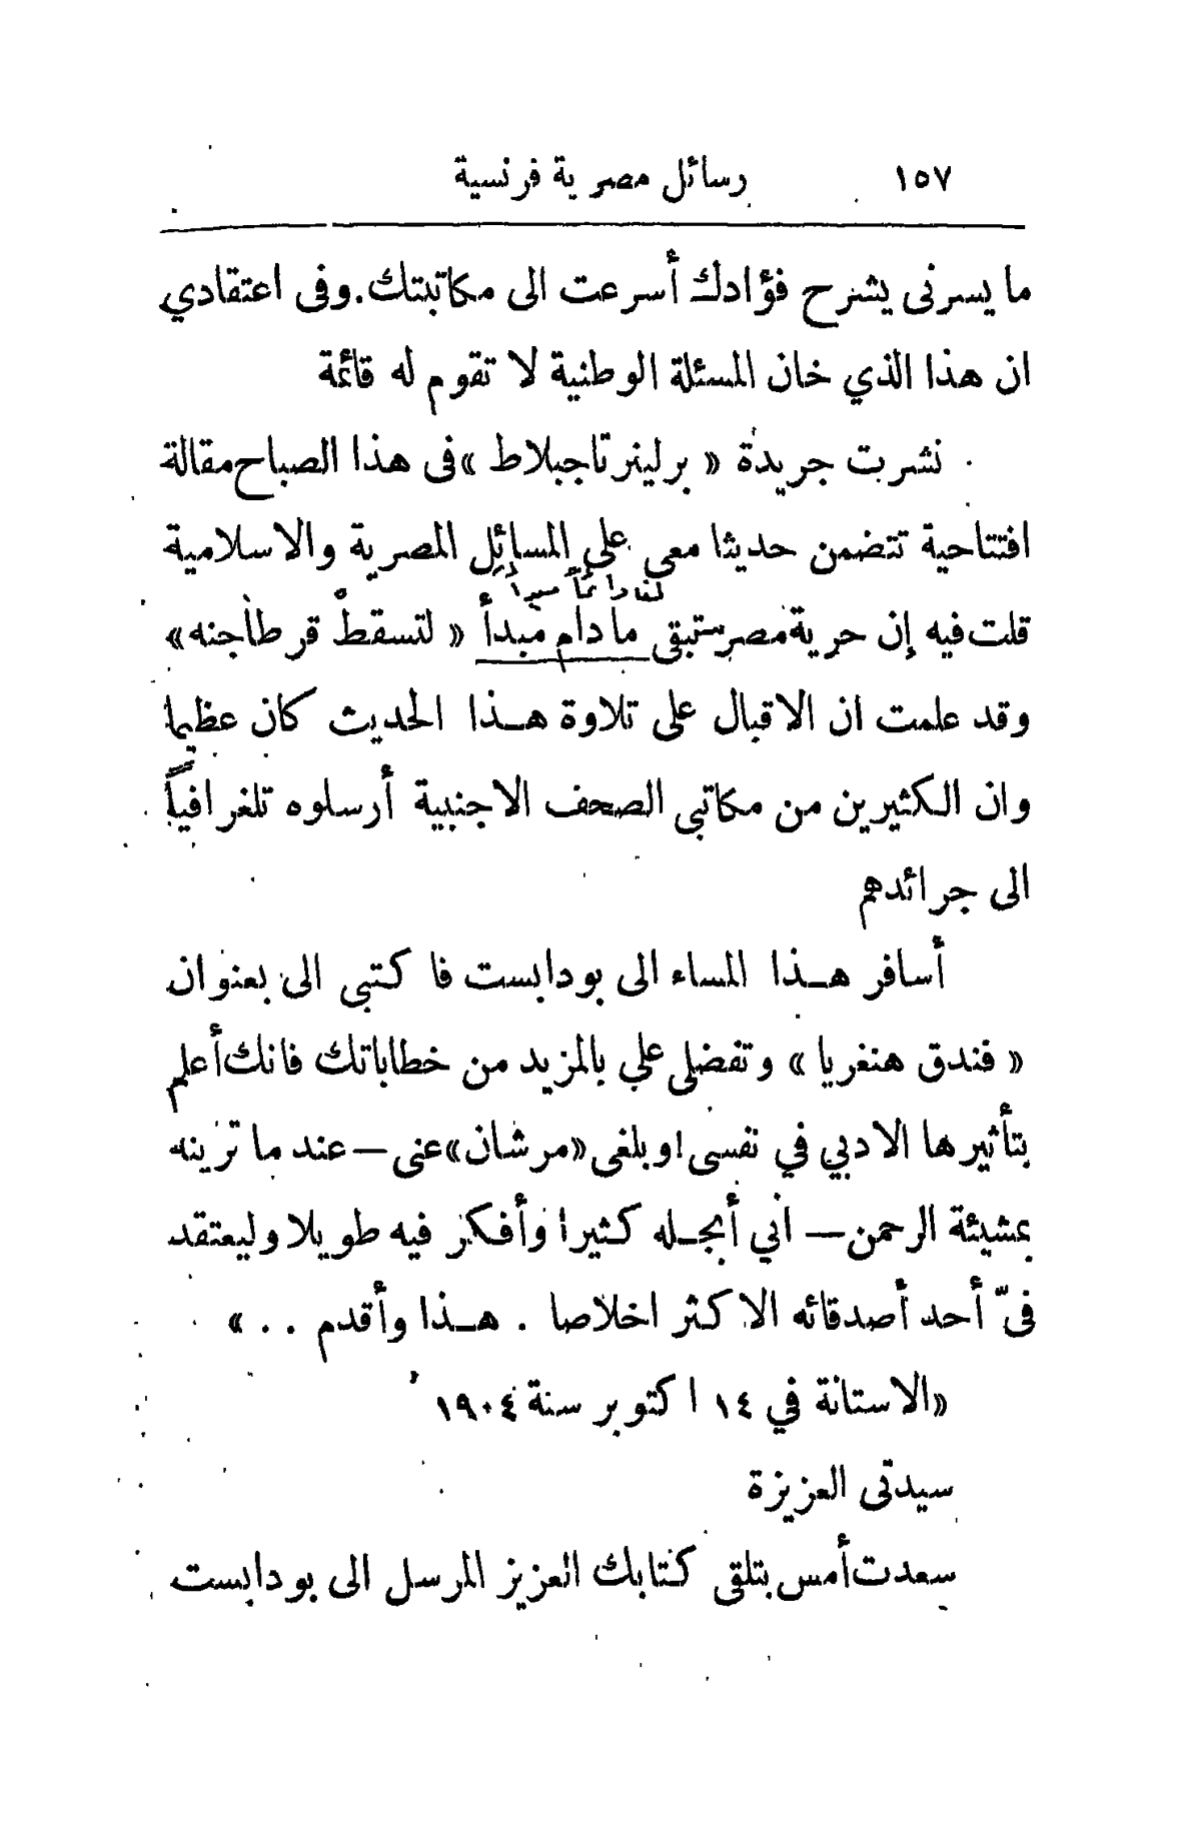 ١٥٧ رسائل مصرية فرنسية
ما يسرنى يشرح فؤادك أسرعت الى مكاتبتك. وفى اعتقادي
ان هذا الذي خان المسئلة الوطنية لا تقوم له قائمة
نشرت جريدة « برلينر تاجبلاط » فى هذا الصباح مقالة
افتتاحية تتضمن حديثا معى على المسائل المصرية والاسلامية
لنا دائما مبدأ
قلت فيه إن حرية مصر ستبقى ما دام مبدأ « لتسقط قرطاجنه »
وقد علمت ان الاقبال على تلاوة هـذا الحديث كان عظيما
وان الكثيرين من مكاتبى الصحف الاجنبية أرسلوه تلغرافياً
الى جرائدهم
أسافر هـذا المساء الى بودابست فا كتبى الى بعنوان
« فندق هنغريا » وتفضلى علي بالمزيد من خطاباتك فانك أعلم
بتأثيرها الادبي في نفسى! وبلغى « مرشان » عنى — عند ما ترينه
بمشيئة الرحمن — اني أبجـله كثيرا وأفكر فيه طويلا وليعتقد
فىّ أحد أصدقائه الاكثر اخلاصا . هـذا وأقدم . . »
« الاستانة في ١٤ اكتوبر سنة ١٩٠٤
سيدتى العزيزة
سعدت أمس بتلقى كتابك العزيز المرسل الى بودابست